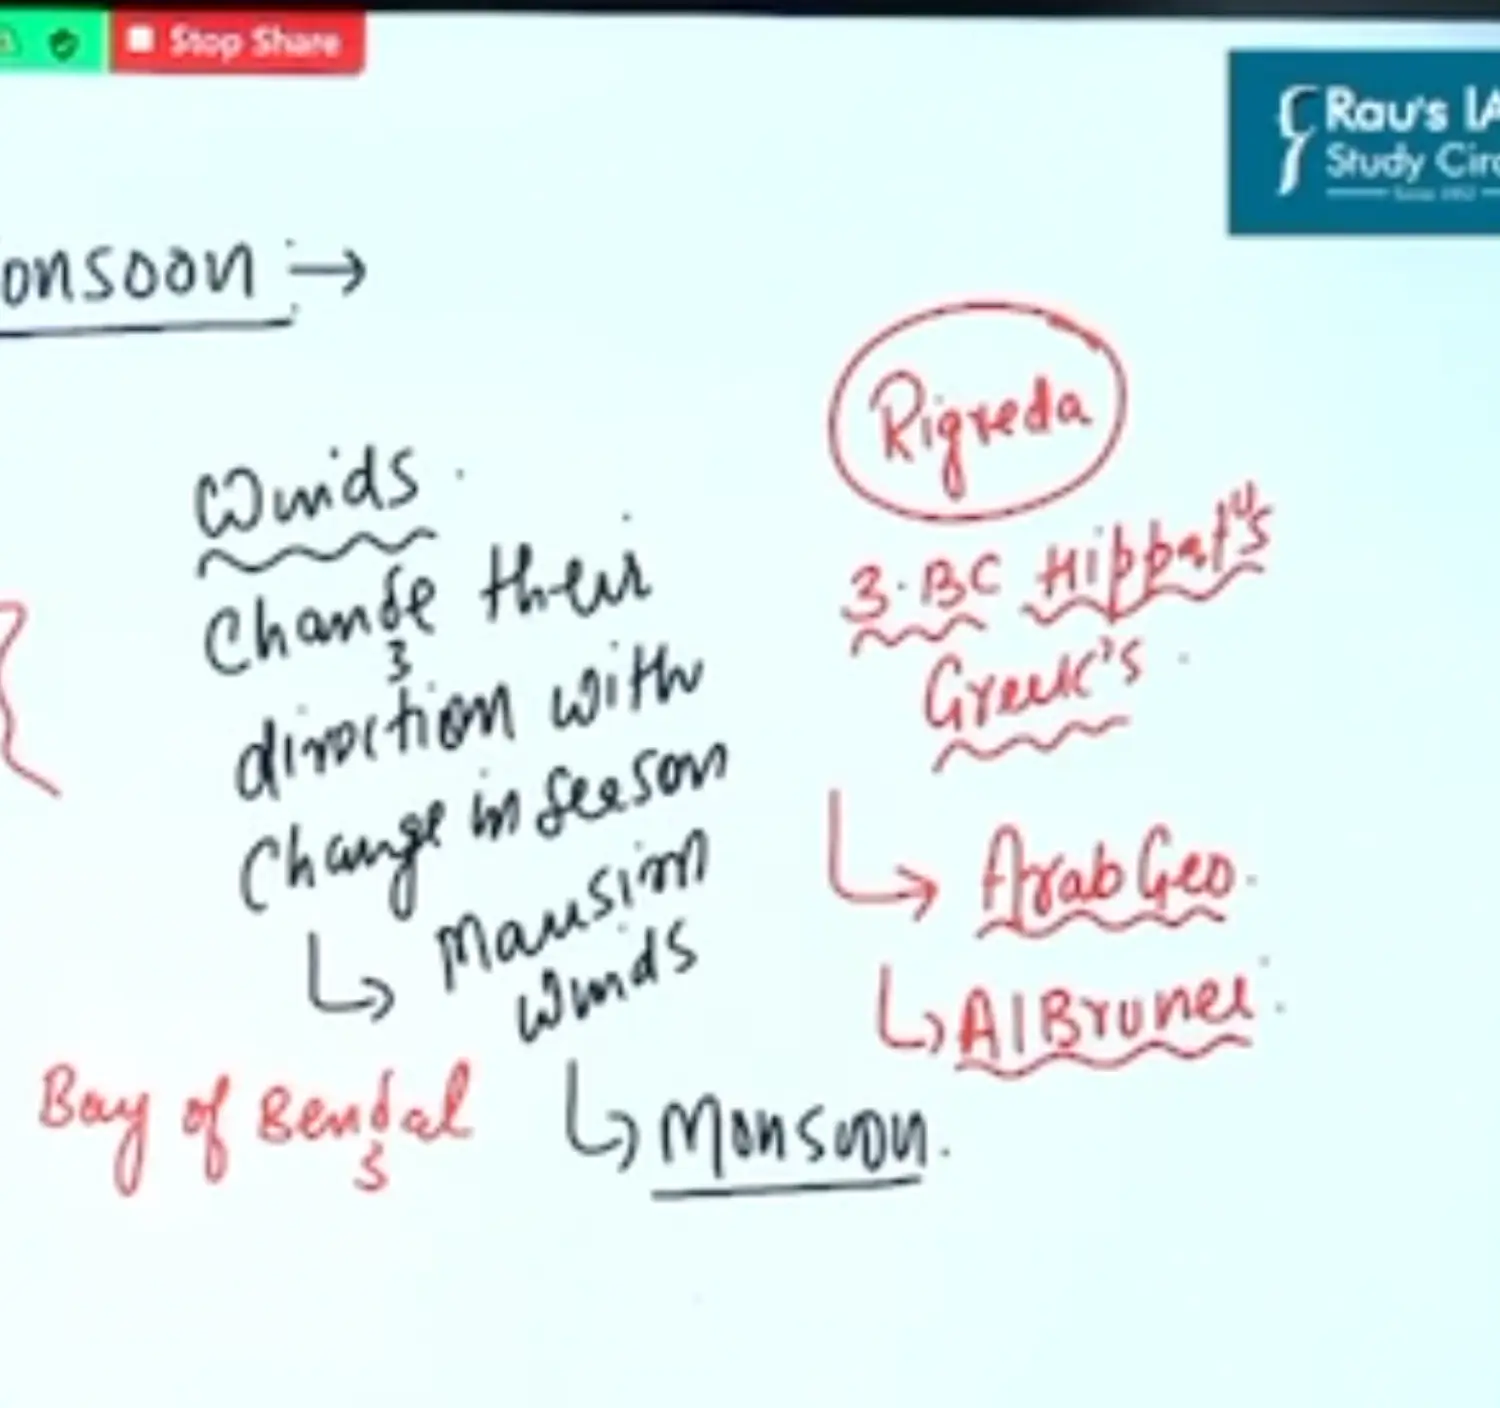 Stop Share
Rau's IA
Study Circ
onsoon :→
Winds.
Change their
direction with
Change in Seeson
↳ Mausim
Winds
↳ Monsoon.
Bay of Bengal
Rigveda
3.BC Hippalus
Greek's
↳ Arab Geo.
↳ AlBrunei